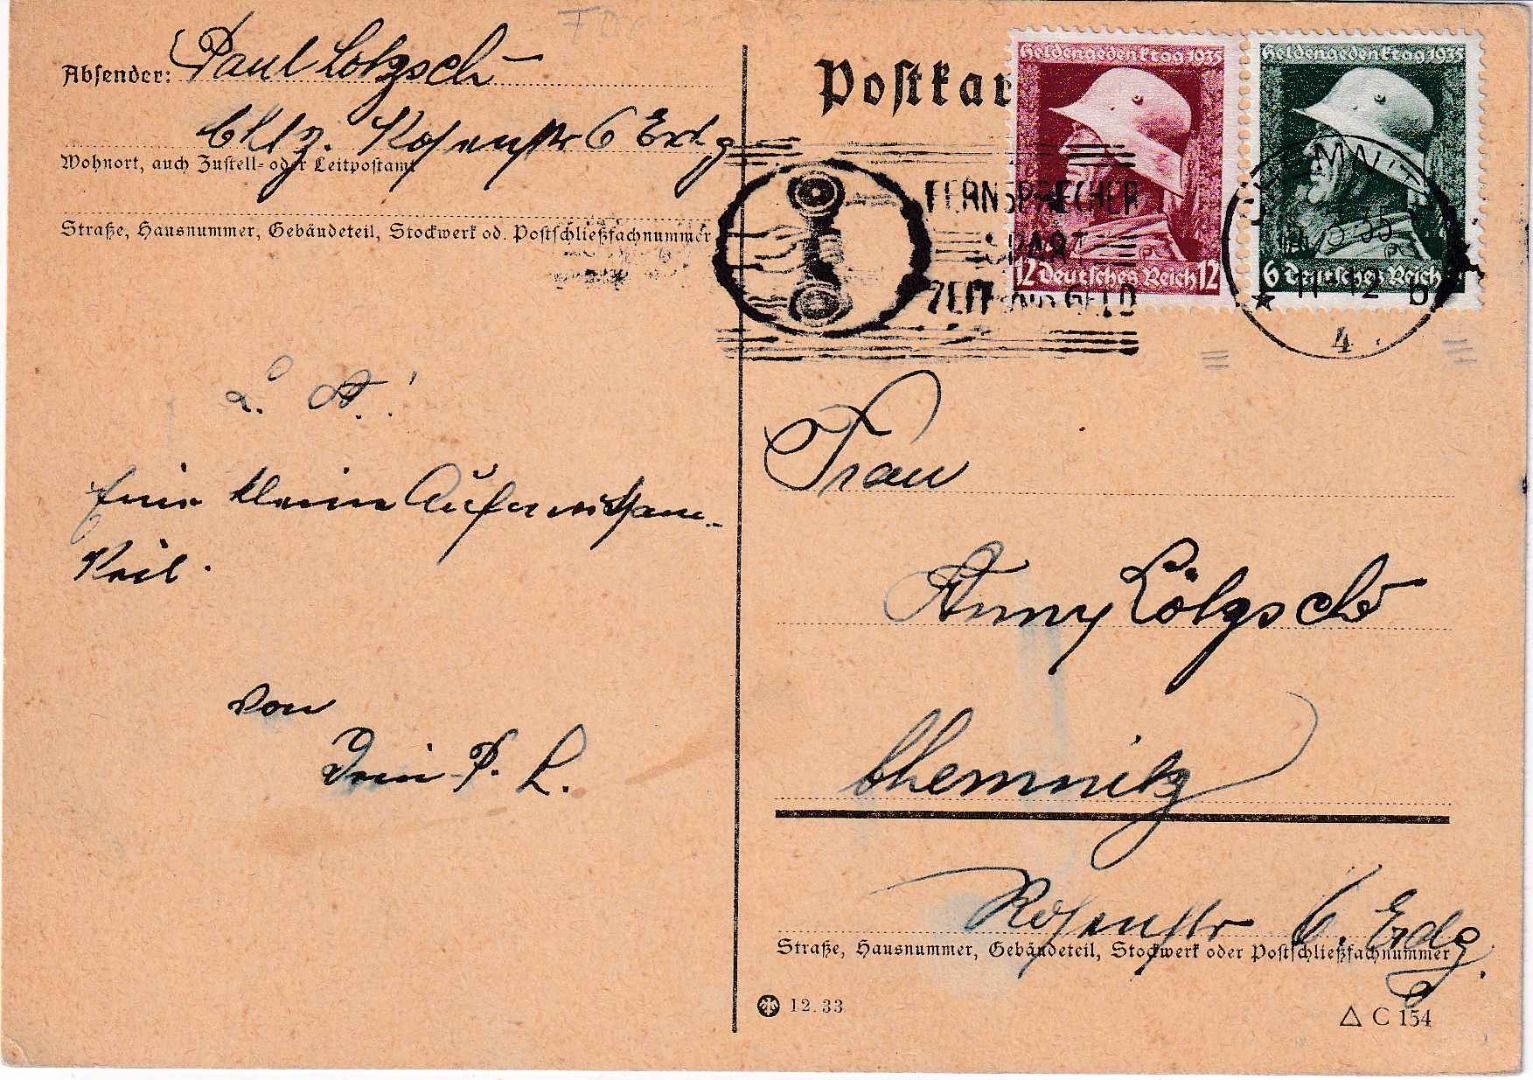 Absender: Paul Lötzsch
Chtz. Rosenstr 6 Erdg
Wohnort, auch Zustell- oder Leitpostamt
Straße, Hausnummer, Gebäudeteil, Stockwerk od. Postschließfachnummer
L. A.!
Eine kleine Aufmerksam-
keit.
von
Dein P. L.
Postkar
Heldengedenktag 1935
12 Deutsches Reich 12
Heldengedenktag 1935
6 Deutsches Reich
FERNSPRECHER
SPART
ZEIT UND GELD
CHEMNITZ
3.35
11-12 b
4
Frau
Anny Lötzsch
Chemnitz
Rosenstr 6. Erdg.
Straße, Hausnummer, Gebäudeteil, Stockwerk oder Postschließfachnummer
12.33
C 154